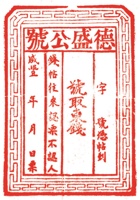 德盛公號
字
號德帖到
號取東錢
錢帖往來認票不認人
咸豐 年 月 日票